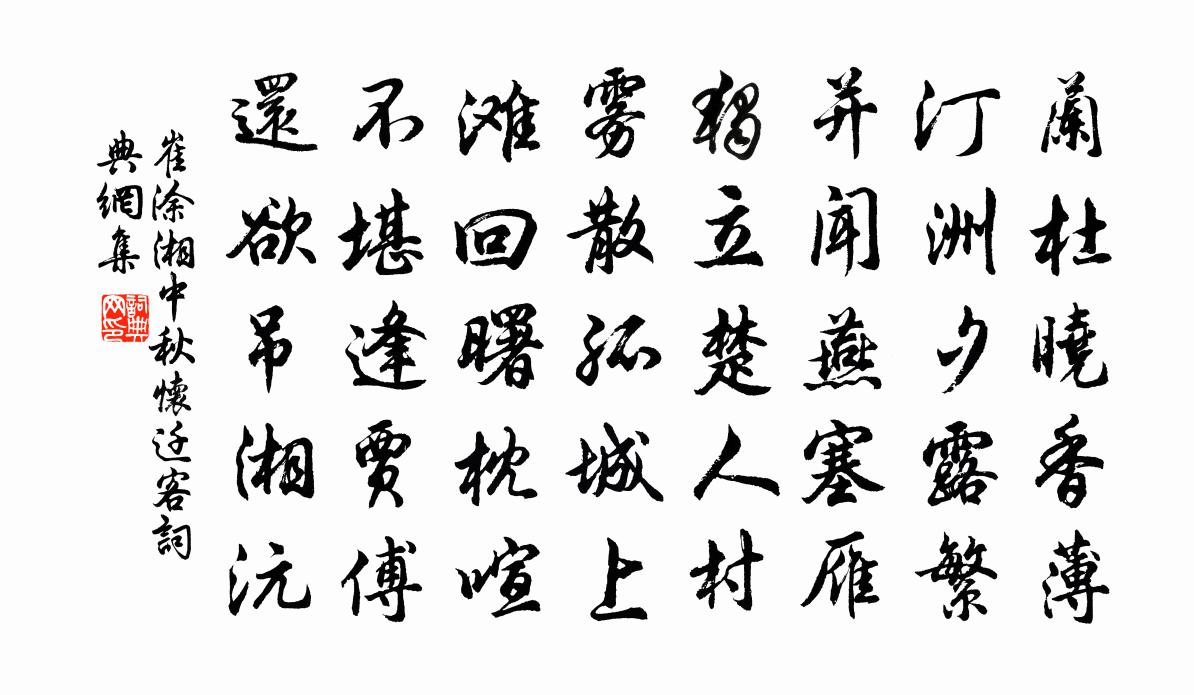 蘭杜曉香薄
汀洲夕露繁
并聞燕塞雁
獨立楚人村
雾散孤城上
滩回曙枕喧
不堪逢賈傅
還欲吊湘沅
崔涂湘中秋懷迁客詞
典網集
詞典
网印